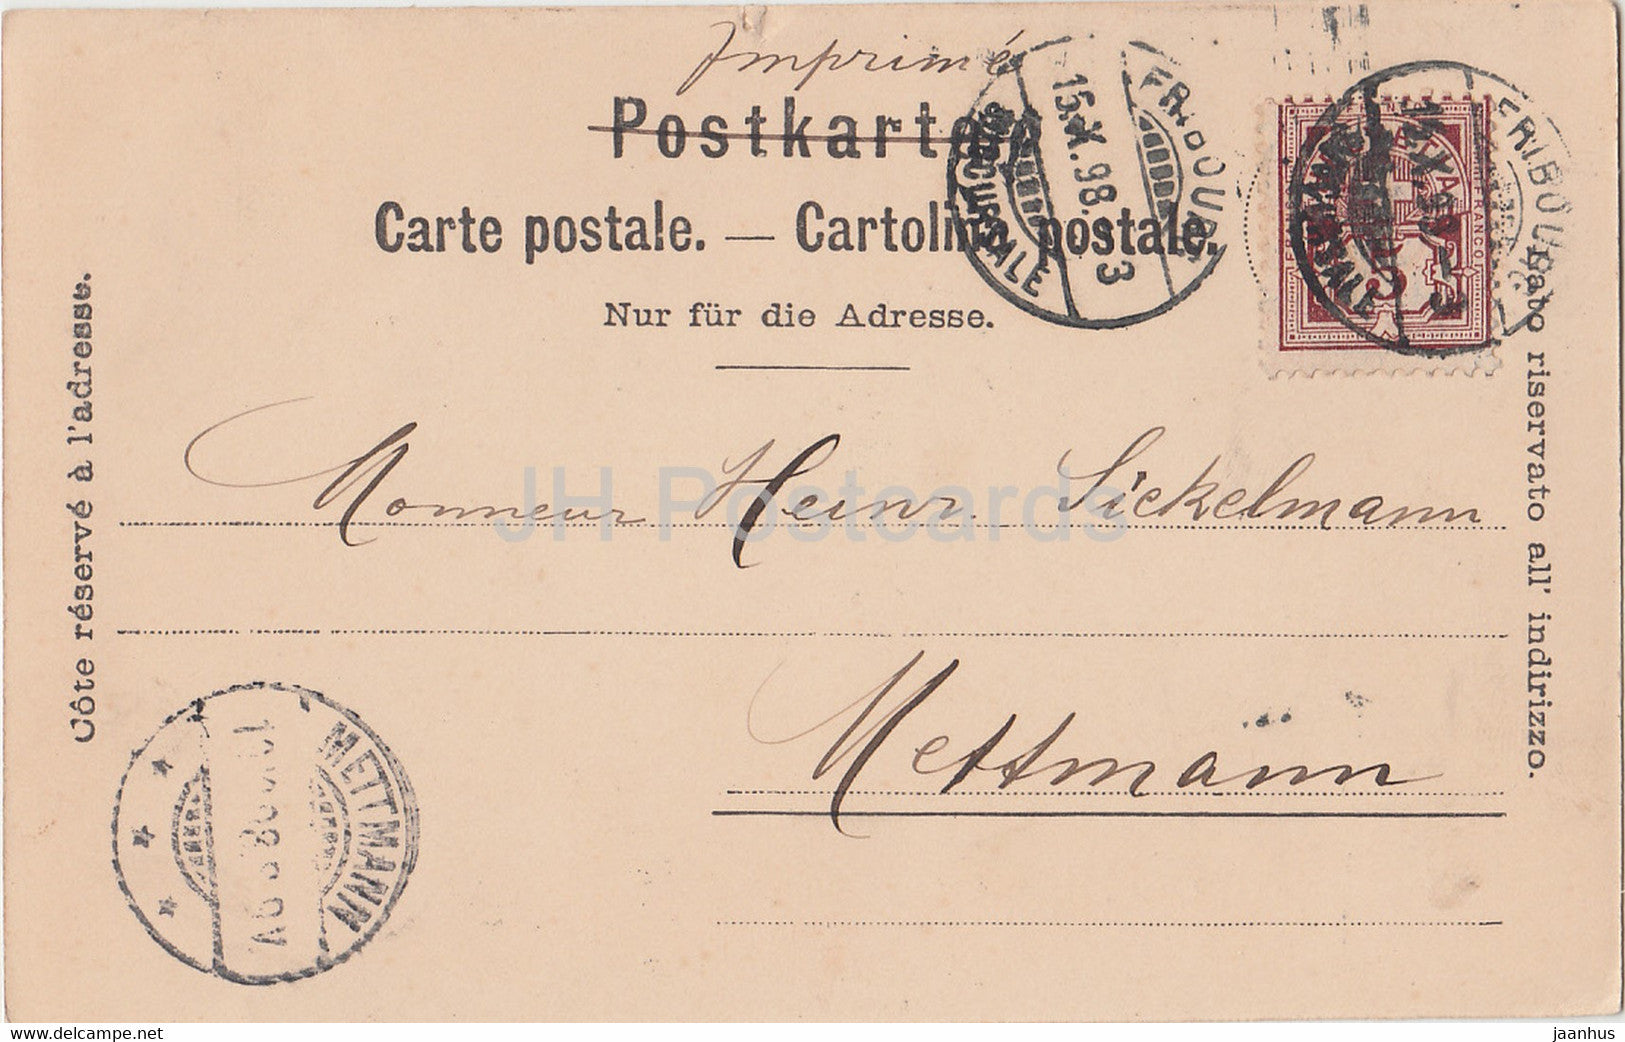 Imprimé
Postkarte
Carte postale. — Cartolina postale.
Nur für die Adresse.
Côte réservé à l'adresse.
Lato riservato all' indirizzo.
FRIBOURG
15.X.98. 3
SUCCURSALE
FRIBOURG
SUCCURSALE
FRANCO
Monneur Heinr. Sickelmann
Mettmann
METTMANN
JH Postcards
old-postcards.com
jaanhus